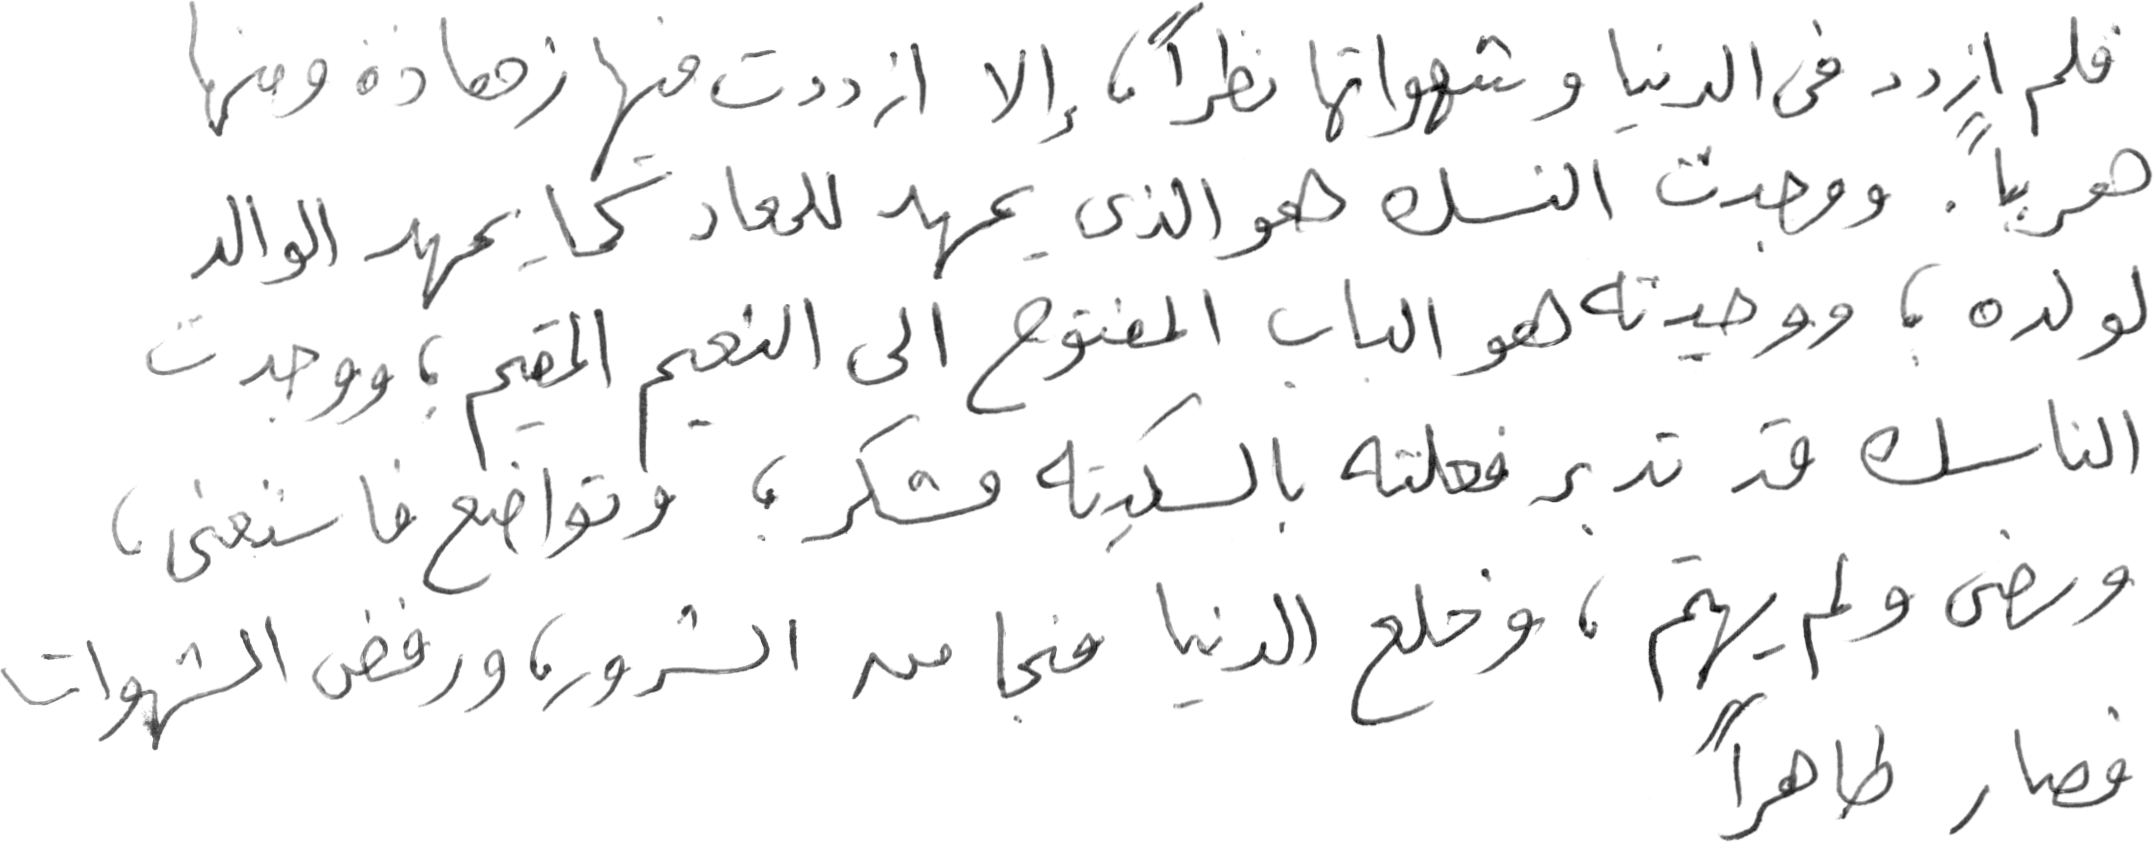 فلم ازدد فى الدنيا و شهواتها نظراً، إلا ازددت فيها زهادة ومنها
هرباً. ووجدت النسك هو الذى يمهد للمعاد كما يمهد الوالد
لولده؛ ووجدته هو الباب المفتوح الى النعيم المقيم؛ ووجدت
الناسك قد تدبر فعلته بالسكينه فشكر؛ وتواضع فاستغنى،
ورضى ولم يهتم، وخلع الدنيا فنجا من الشرور، ورفض الشهوات
فصار طاهراً